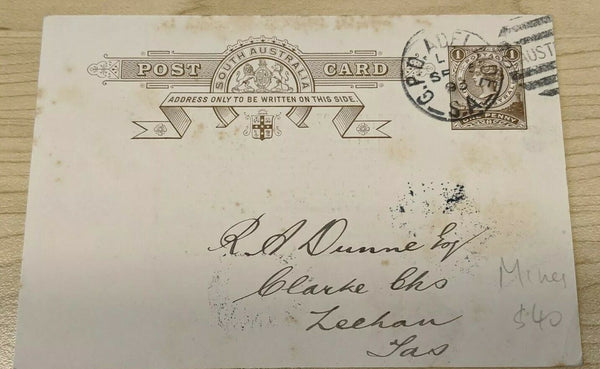 SOUTH AUSTRALIA
POST CARD
ADDRESS ONLY TO BE WRITTEN ON THIS SIDE.
G.P.O. ADEL
SE
S.A.
AUST
1 1
ONE PENNY
R A Dunne Esq
Clarke Chs
Zeehan
Tas
Mines
$40